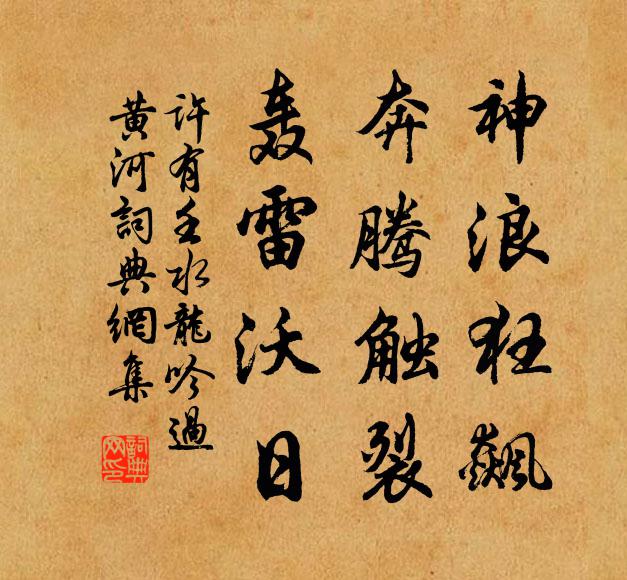 神浪狂飙
奔腾触裂
轰雷沃日
许有壬水龙吟過
黄河詞典網集
詞典
网印